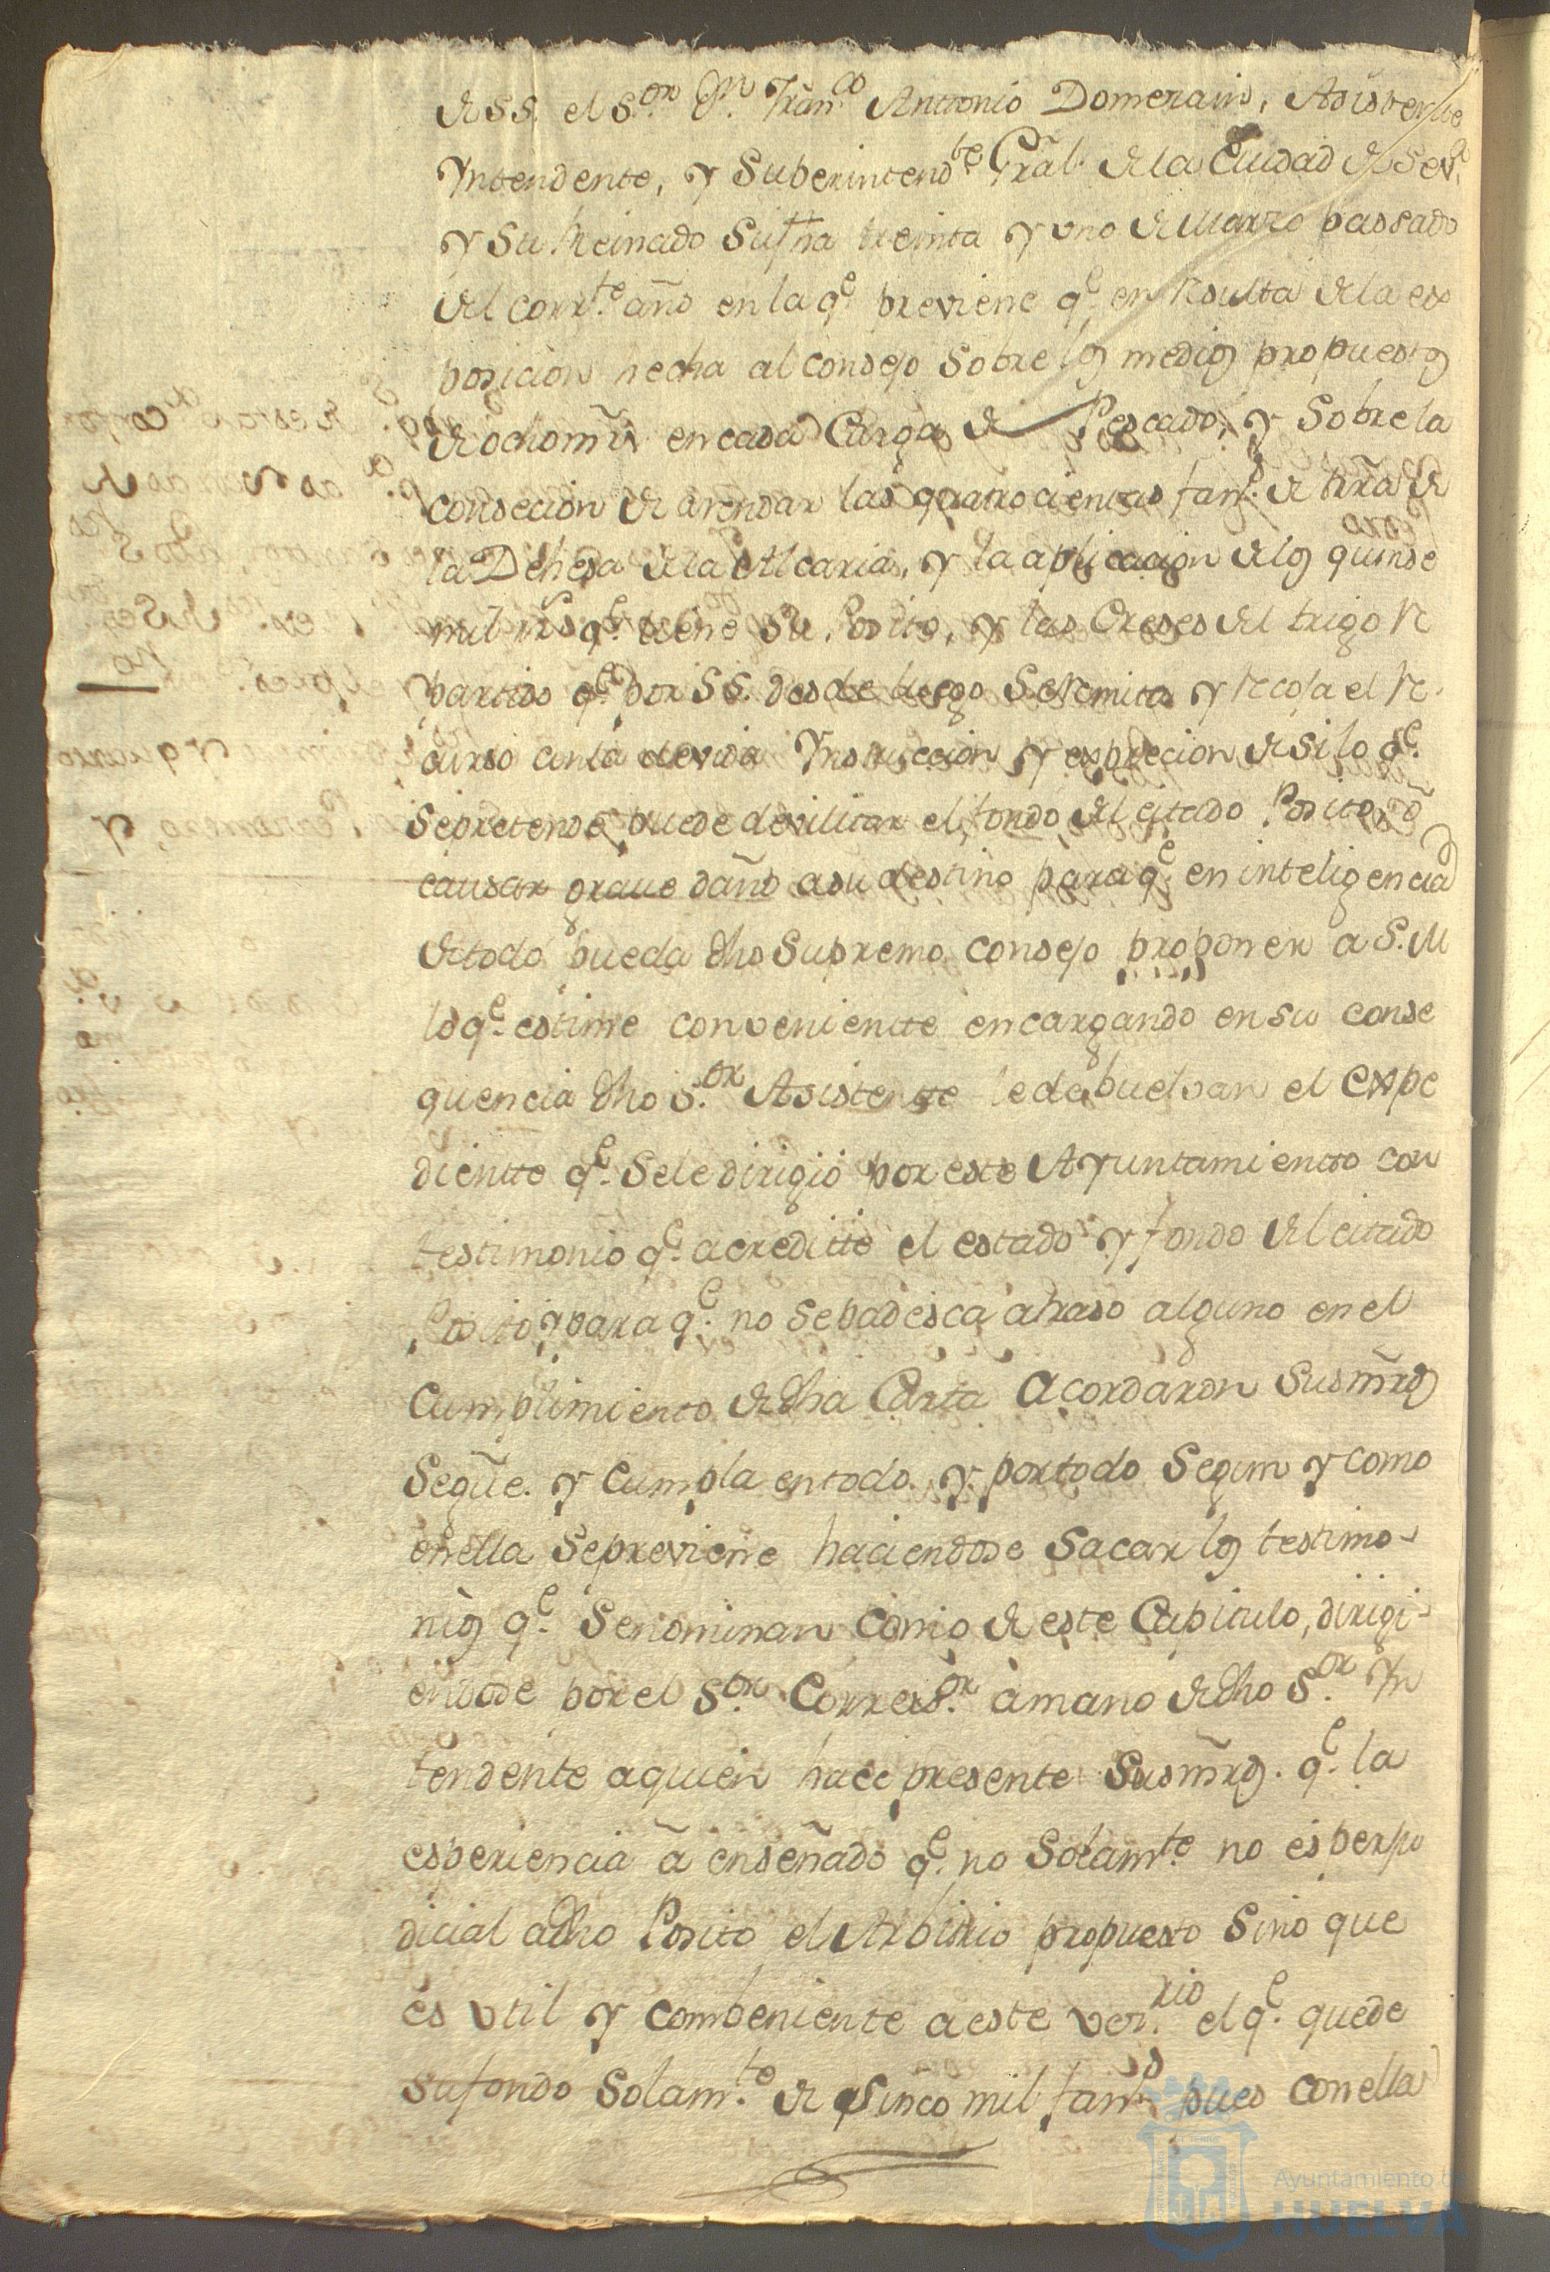 de S.S. el S.or Dn. Fran.co Antonio Domerain, Asistente
Yntendente, y Superintend.te Gral. de la Ciudad de Sev.a
y Su Reinado Su fha treinta y uno de Marzo passado
del corr.te año en la q.e previene q.e en resulta de la ex
posicion hecha al Consejo Sobre los medios propuestos
de ocho mrs. en cada Carga de Pescado, y Sobre la
consecion de arrendar las quatrocientas fan.s de trra de
la Dehesa de la Alcaria, y la aplicacion de los quinse
mil rrs q.e tiene Su Posito, y las Creses del trigo re
partido q.e por S.S. desde luego Se remita y recoja el re-
curso con la devida Ynstruccion y exprecion de si lo q.e
Se pretende puede devilitar el fondo del citado Posito, o
causar graue daño a su destino para q.e en inteligencia
de todo pueda dho Supremo Consejo proponer a S.M
lo q.e estime conveniente encargando en su conse
quencia dho S.or Asistente le debuelvan el expe
diente q.e Se le dirigió por este Ayuntamiento con
testimonio q.e acreditte el estado y fondo del citado
Posito y para q.e no Se padesca atraso alguno en el
Cumplimiento de dha Carta Acordaron Sus mrds
Segûe. y Cumpla en todo y por todo Segun y como
en ella Se previene haciendose Sacar los testimo-
nios q.e Se nominan como de este Capitulo, dirigi-
endose por el S.or Correxd.or a mano de dho S.or Yn
tendente a quien hace presente Sus mrds. q.e la
esperiencia ã enseñado q.e no Solam.te no es perju
dicial a dho Posito el Arbitrio propuesto Sino que
es vtil y combeniente a este ver.rio el q.e quede
su fondo Solam.te de Sinco mil fan.s pues con ella
Ayuntamiento de
HUELVA